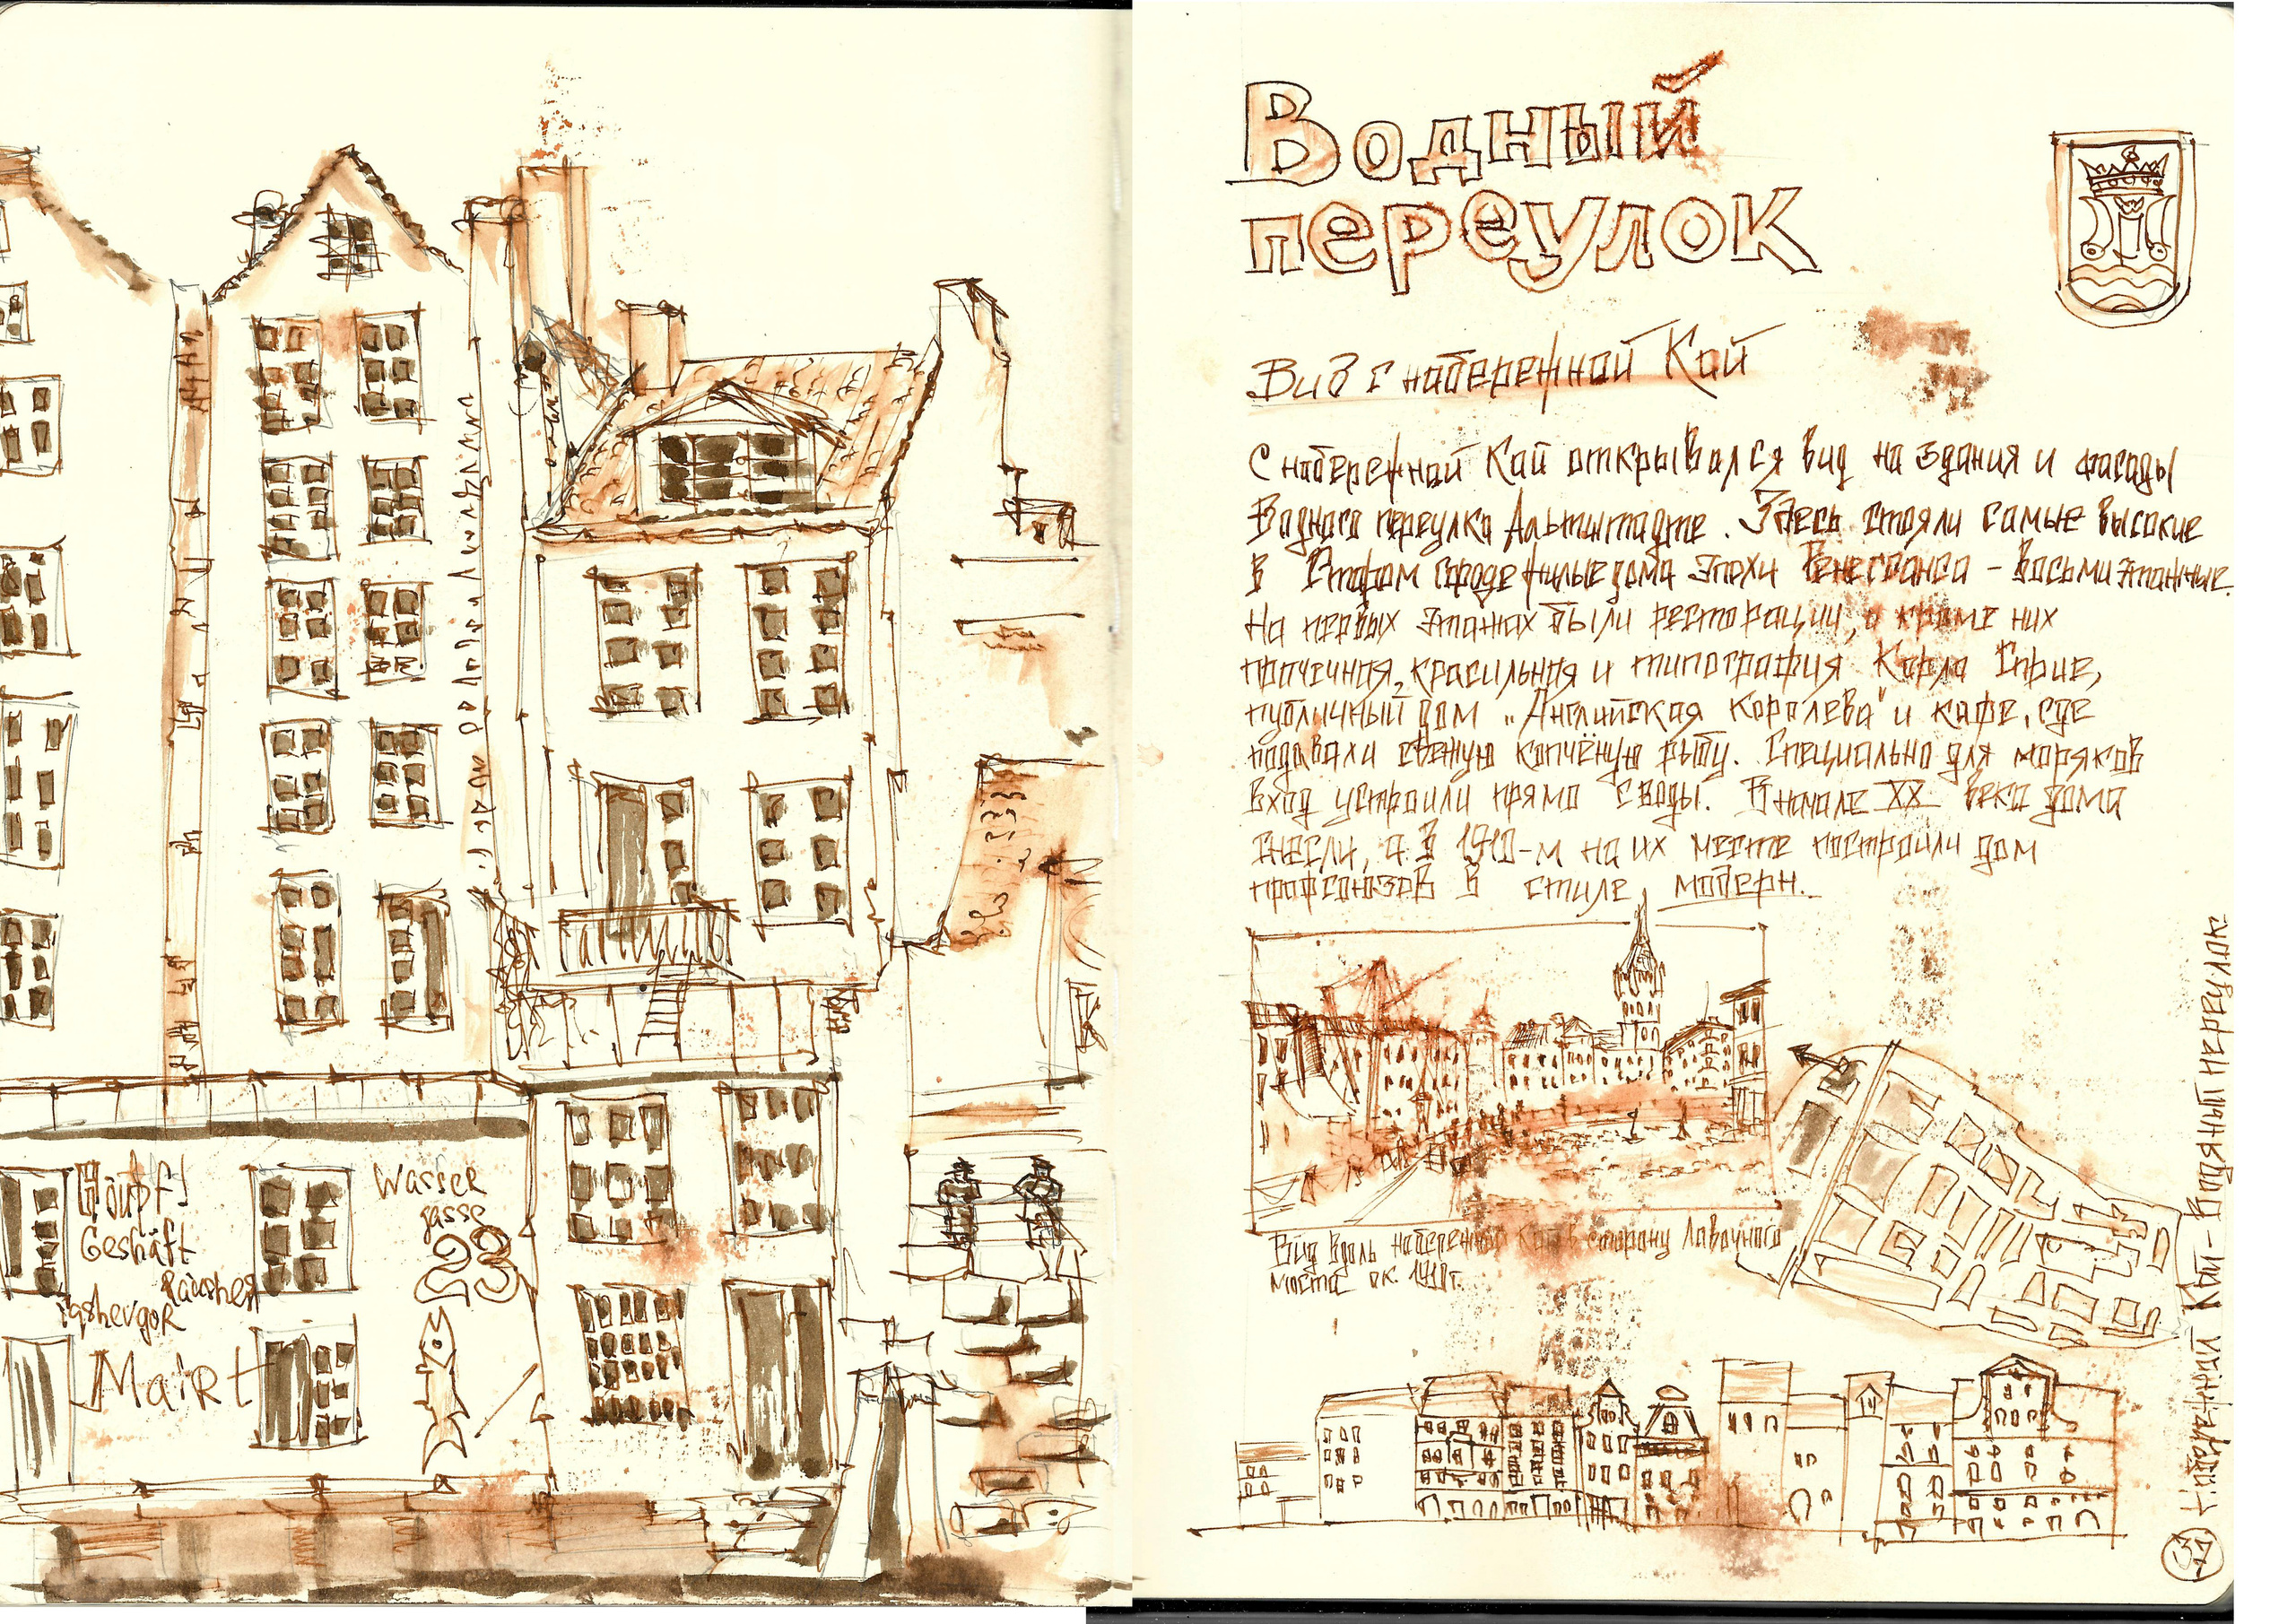 Häupt
Geshäft
Räusher
Markt
Wasser
gasse
23
Водный
переулок
Вид с набережной Кай
С набережной Кай открывался вид на здания и фасады
Водного переулка Альтштадте. Здесь стояли самые высокие
в Старом городе жилые дома эпохи Ренессанса - восьмиэтажные.
На первых этажах были ресторации, а кроме них
прачечная, красильная и типография Карла
публичный дом „Английская королева" и кафе, где
подавали свежую копчёную рыбу. Специально для моряков
вход устроили прямо с воды. В начале XX века дома
снесли, а в 1910-м на их месте построили дом
профсоюзов в стиле модерн.
Вид вдоль набережной Кай в сторону Лавочного
моста ок. 1910г.
Кай - Водяный переулок
37